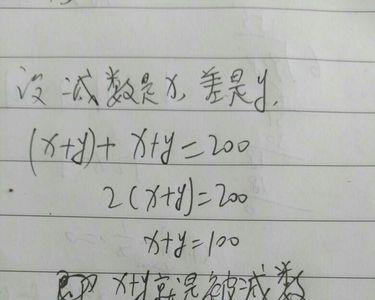 设减数是x,差是y.
(x+y)+x+y=200
2(x+y)=200
x+y=100
即x+y就是被减数